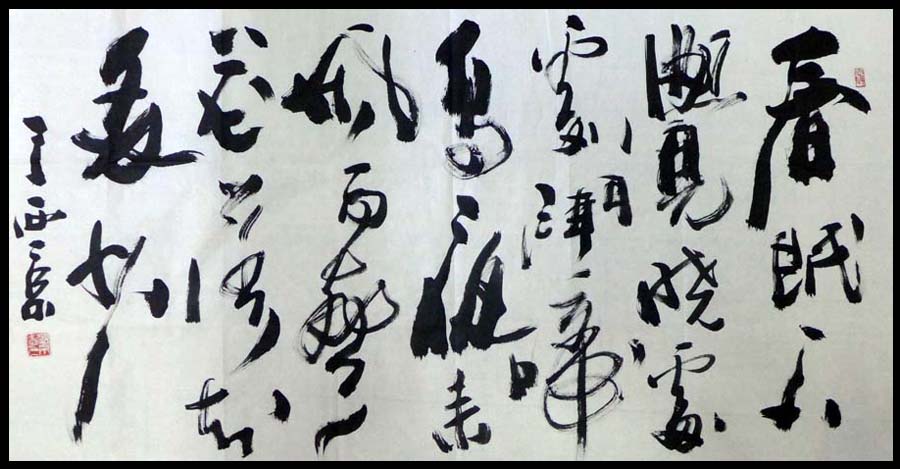 春眠不
覺曉處
處聞啼
鳥夜来
風雨聲
花落知
多少
王西